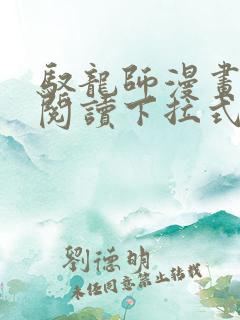 馭龍師漫畫
閱讀下拉式
劉德明
未經同意禁止轉載